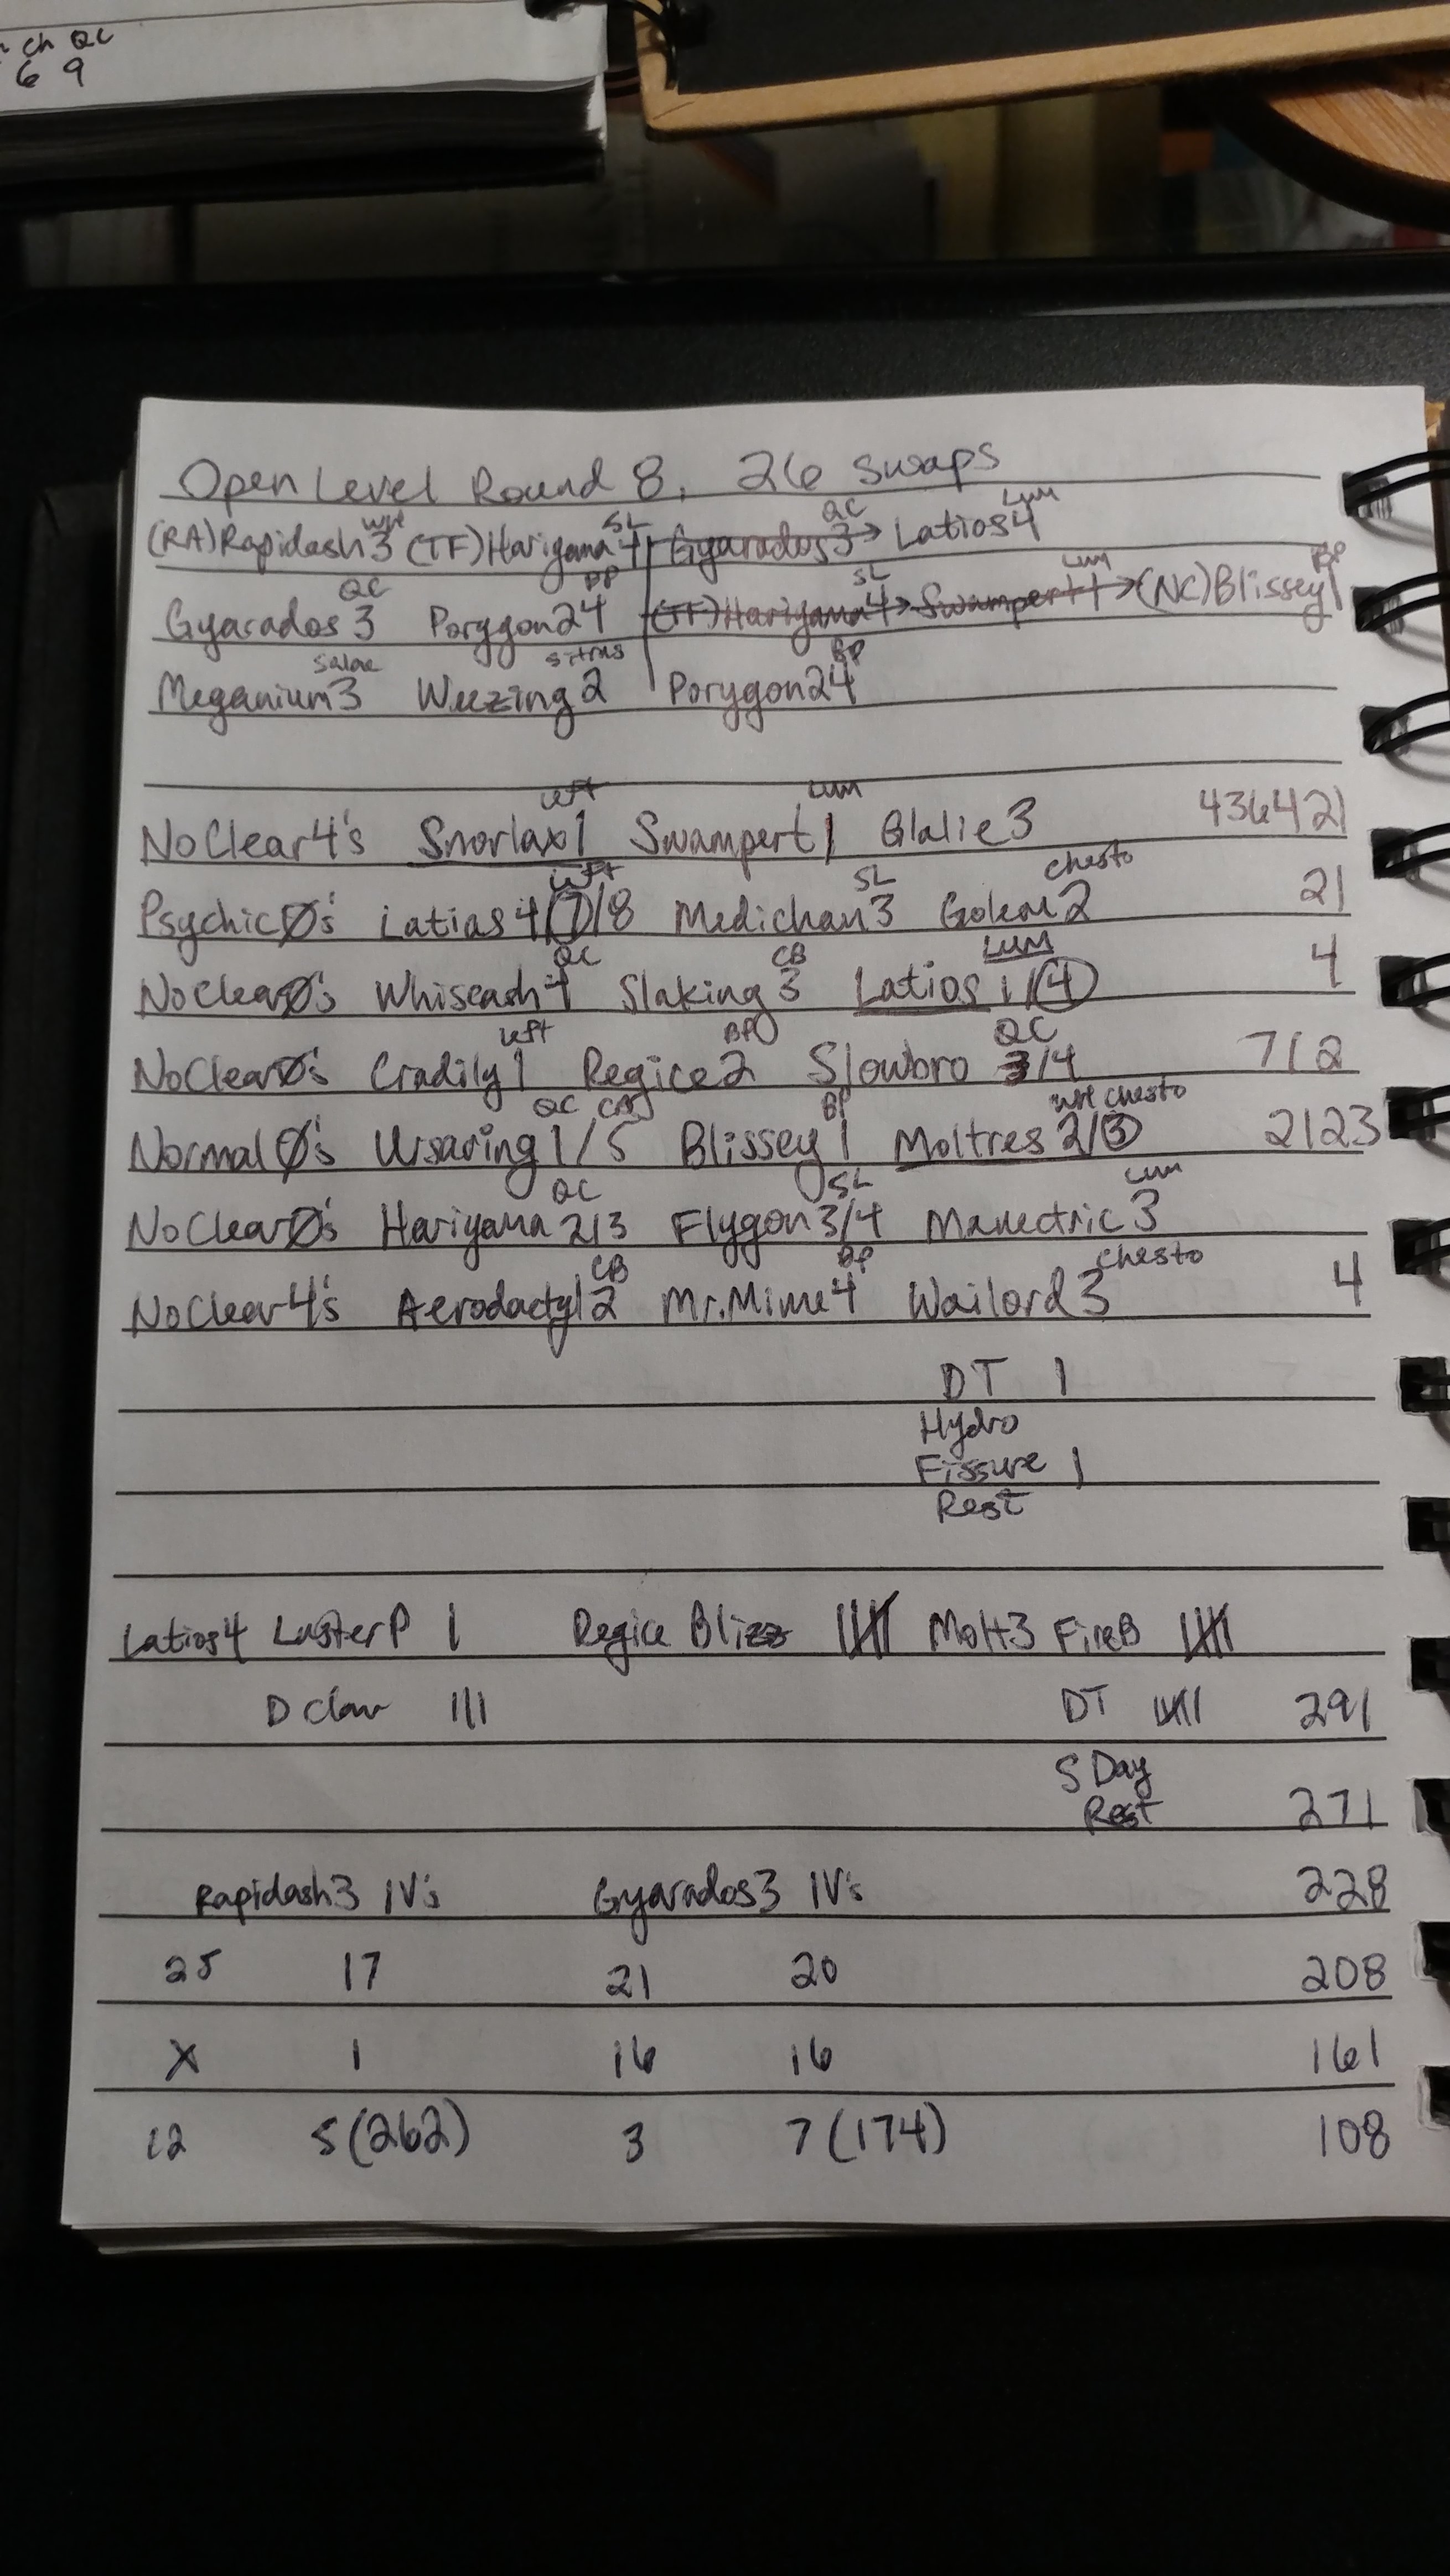 Ch QC
6 9
Open Level Round 8, 26 swaps
WH SL QC Lum
(RA)Rapidash3 (TF)Hariyama4 Gyarados3→ Latios4
QC BP SL Lum BP
Gyarados3 Porygon24 (TF)Hariyama4→Swampert1→(NC)Blissey1
Salac Sitrus BP
Meganium3 Weezing2 Porygon24
Left Lum
NoClear4's Snorlax1 Swampert1 Glalie3 436421
Left SL Chesto
PsychicØ's Latias4/7/8 Medicham3 Golem2 21
QC CB LUM
NoClearØ's Whiscash4 Slaking3 Latios1/4 4
Left BP QC
NoClearØ's Cradily1 Regice2 Slowbro 3/4 712
QC CB BP WH Chesto
NormalØ's Ursaring1/5 Blissey1 Moltres2/3 2123
QC SL Lum
NoClearØ's Hariyama2/3 Flygon3/4 Manectric3
CB BP Chesto
NoClear4's Aerodactyl2 Mr.Mime4 Wailord3 4
DT 1
Hydro
Fissure 1
Rest
Latios4 LusterP | Regice Blizz Molt3 FireB
D Claw ||| DT 291
S Day
Rest 271
Rapidash3 IV's Gyarados3 IV's 228
25 17 21 20 208
X 1 16 16 161
12 5(262) 3 7(174) 108